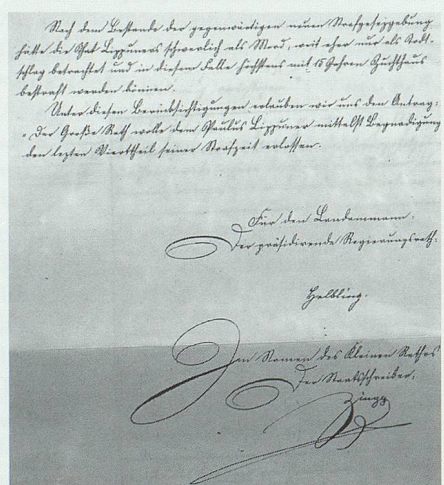 Nach dem Bestande der gegenwärtigen neuen Strafgesetzgebung
hätte die That Lippuners schwerlich als Mord, weit eher nur als Todt-
schlag betrachtet und in diesem Falle höchstens mit 15 Jahren Zuchthaus
bestraft werden können.
Unter diesen Berücksichtigungen erlauben wir uns den Antrag:
"Der Große Rath wolle dem Paulus Lippuner mittelst Begnadigung
den lezten Viertheil seiner Strafzeit erlassen.
Für den Landammann,
Der präsidirende Regierungsrath:
Helbling.
Im Namen des Kleinen Rathes
Der Staatsschreiber,
Zingg